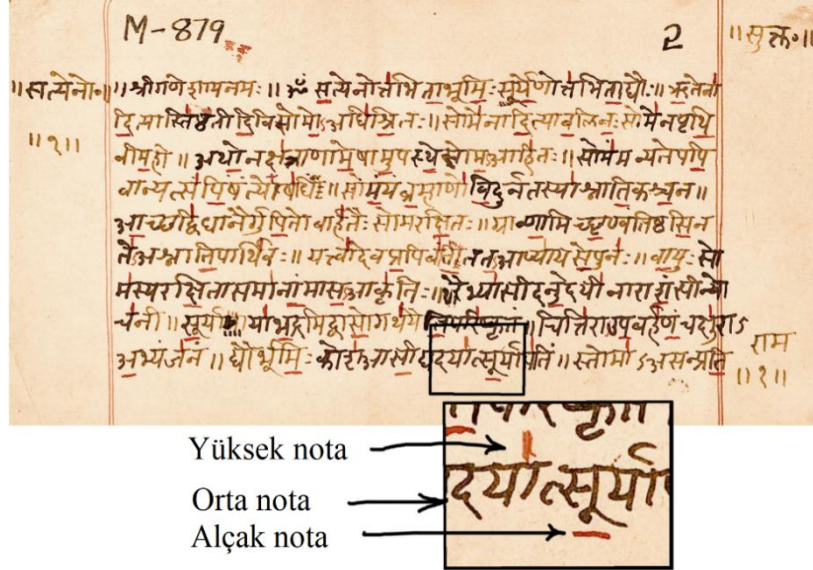 M-879
2
॥सुक्त॰॥
॥सत्येनो॰॥
॥१॥
॥श्रीगणेशायनमः॥ॐ सत्येनोत्तभिताभूमिः सूर्येणोत्तभिताद्यौः॥ऋतेना
दित्यास्तिष्ठंतीदिविसोमोअधिश्रितः॥सोमेनादित्याबलिनःसोमेनपृथि
वीमही॥अथोनक्षत्राणामेषामुपस्थेसोमआहितः॥सोमंमन्यतेपपि
वान्यत्संपिषंत्योषधिं॥सोमंयंब्रह्माणोविदुर्नतस्याश्नातिकश्चन॥
आच्छद्विधानैर्गुपितोबार्हतैःसोमरक्षितः॥ग्राव्णामिच्छृण्वंतिष्ठसिन
तेअश्नातिपार्थिवः॥यत्त्वादेवप्रपिबंतिततआप्यायसेपुनः॥वायुःसो
मस्यरक्षितासमानांमासआकृतिः॥रैभ्यासीदनुदेयीनाराशंसीन्यो
चनी॥सूर्यायाभद्रमिद्वासोगाथयैतिपरिष्कृतं॥चित्तिराउपबर्हणंचक्षुराऽ
अभ्यंजनं॥द्यौर्भूमिःकोशआसीद्यदयात्सूर्यापतिं॥स्तोमाऽअसन्प्रति
राम
॥१॥
Yüksek nota
Orta nota
Alçak nota
दयात्सूर्याप